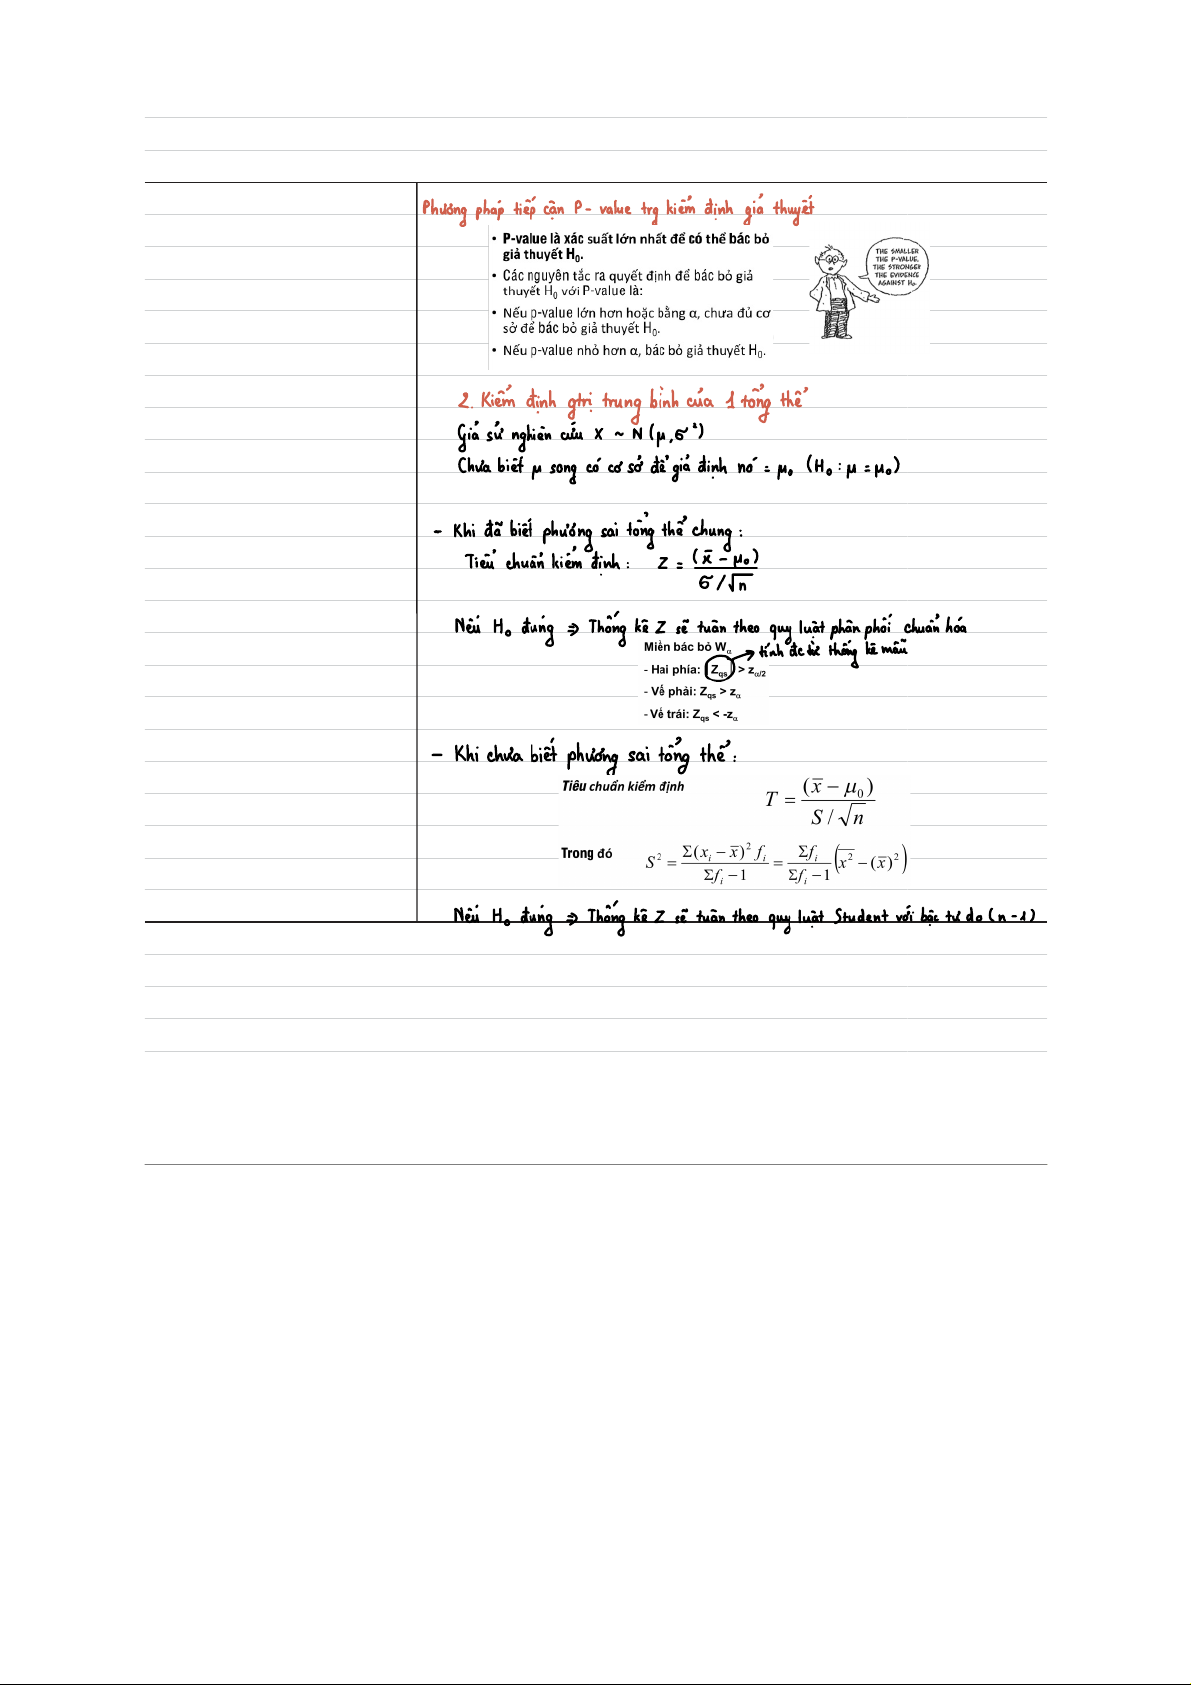 Phương pháp tiếp cận P - value trg kiểm định giả thuyết
• P-value là xác suất lớn nhất để có thể bác bỏ
giả thuyết H₀.
• Các nguyên tắc ra quyết định để bác bỏ giả
thuyết H₀ với P-value là:
• Nếu p-value lớn hơn hoặc bằng α, chưa đủ cơ
sở để bác bỏ giả thuyết H₀.
• Nếu p-value nhỏ hơn α, bác bỏ giả thuyết H₀.
THE SMALLER
THE P-VALUE,
THE STRONGER
THE EVIDENCE
AGAINST H₀.
2. Kiểm định gtrị trung bình của 1 tổng thể
Giả sử nghiên cứu X ~ N(μ,σ²)
Chưa biết μ song có cơ sở để giả định nó = μ₀ (H₀ : μ = μ₀)
- Khi đã biết phương sai tổng thể chung :
Tiêu chuẩn kiểm định : Z = (x̄ - μ₀) / σ/√n
Nếu H₀ đúng ⇒ Thống kê Z sẽ tuân theo quy luật phân phối chuẩn hóa
Miền bác bỏ Wα → tính đc từ thống kê mẫu
- Hai phía: |Zqs| > zα/2
- Vế phải: Zqs > zα
- Vế trái: Zqs < -zα
- Khi chưa biết phương sai tổng thể :
Tiêu chuẩn kiểm định T = (x̄ − μ₀) / S / √n
Trong đó S² = Σ(xᵢ − x̄)² fᵢ / Σfᵢ − 1 = Σfᵢ / Σfᵢ − 1 (x̄² − (x̄)²)
Nếu H₀ đúng ⇒ Thống kê Z sẽ tuân theo quy luật Student với bậc tự do (n - 1)